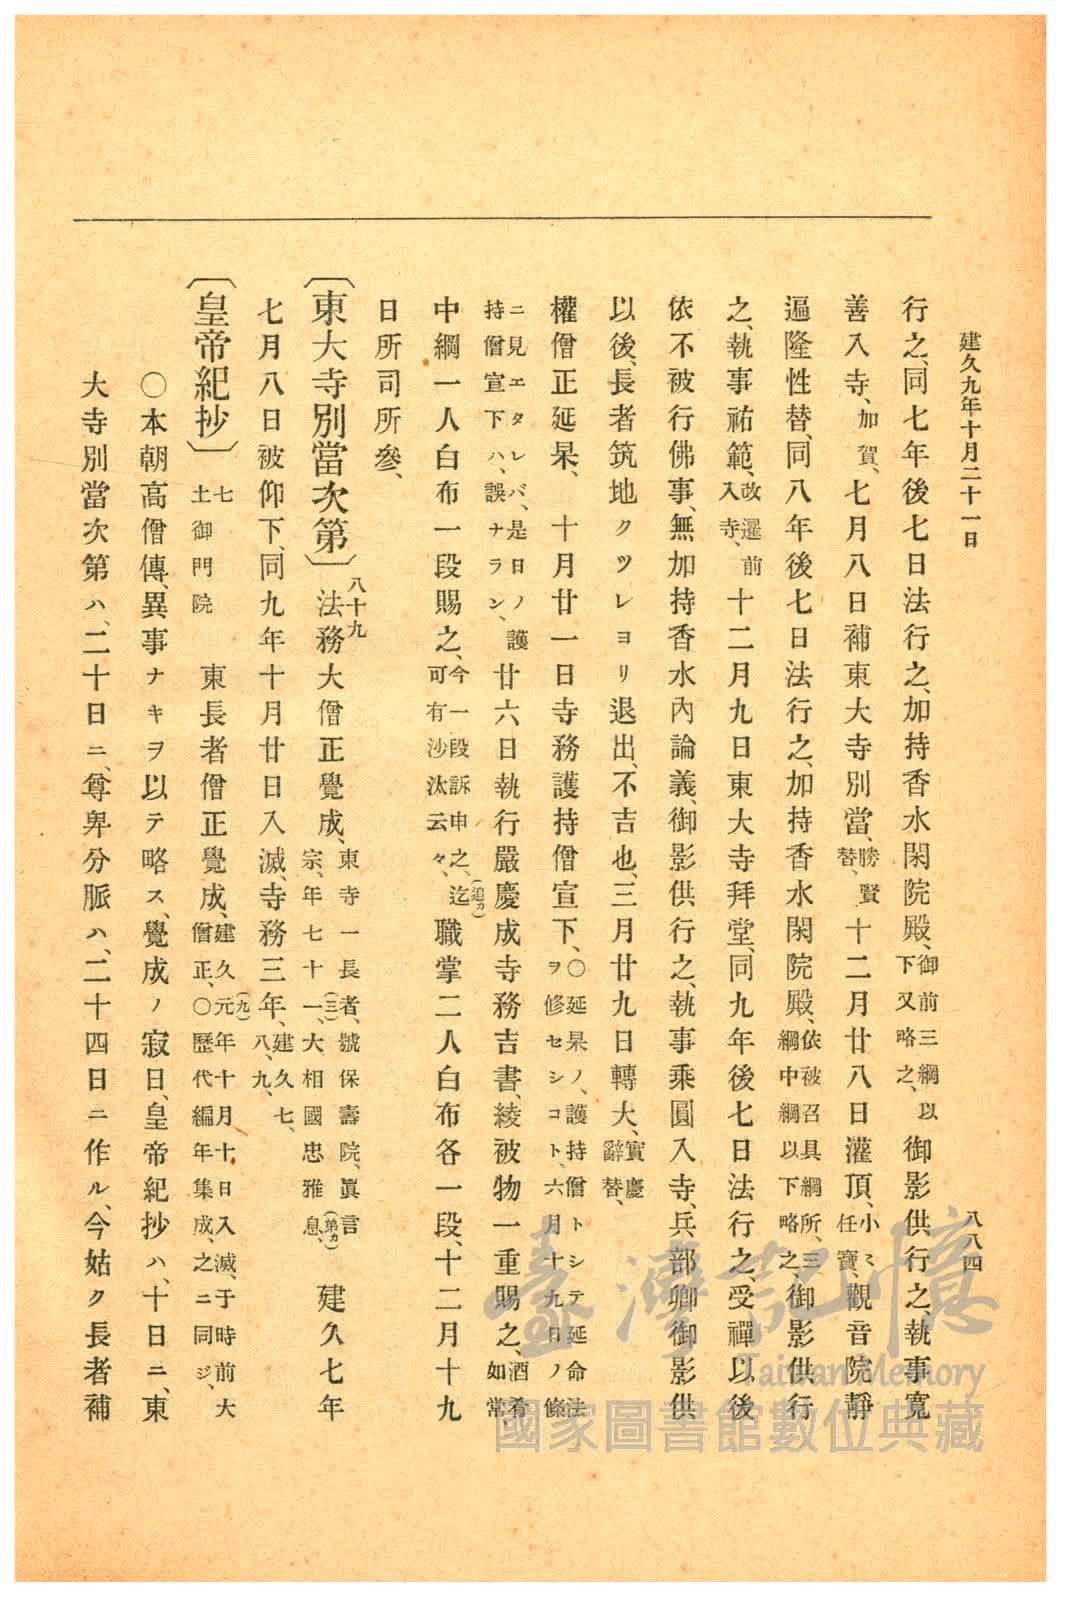 建久九年十月二十一日
八八四
行之、同七年後七日法行之、加持香水閑院殿、御前三綱以下又略之、御影供行之、執事寬
善入寺、加賀、七月八日補東大寺別當、勝賢替、十二月廿八日灌頂、小ミ任寶、觀音院靜
遍隆性替、同八年後七日法行之、加持香水閑院殿、依被召具綱所、三綱中綱以下略之、御影供行
之、執事祐範、改暹前入寺、十二月九日東大寺拜堂、同九年後七日法行之、受禪以後
依不被行佛事、無加持香水內論義、御影供行之、執事乘圓入寺、兵部卿御影供
以後、長者筑地クツレヨリ退出、不吉也、三月廿九日轉大、實慶辭替、
權僧正延杲、　十月廿一日寺務護持僧宣下、〇延杲ノ、護持僧トシテ延命法ヲ修セシコト、六月十九日ノ條
ニ見エタレバ、是日ノ護持僧宣下ハ、誤ナラン、廿六日執行嚴慶成寺務吉書、綾被物一重賜之、酒肴如常、
中綱一人白布一段賜之、今一段訴申之、迄(追カ)可有沙汰云々、職掌二人白布各一段、十二月十九
日所司所參、
〔東大寺別當次第〕八十九　法務大僧正覺成、東寺一長者、號保壽院、眞言宗、年七十一、(三)大相國忠雅息、(弟カ)　建久七年
七月八日被仰下、同九年十月廿日入滅、寺務三年、(九)建久七、八、九、
〔皇帝紀抄〕七土御門院　東長者僧正覺成、建久元年十月十日入滅、于時前大僧正、〇歷代編年集成、之ニ同ジ、
〇本朝高僧傳、異事ナキヲ以テ略ス、覺成ノ寂日、皇帝紀抄ハ、十日ニ、東
大寺別當次第ハ、二十日ニ、尊卑分脈ハ、二十四日ニ作ル、今姑ク長者補
臺灣記憶
Taiwan Memory
國家圖書館數位典藏